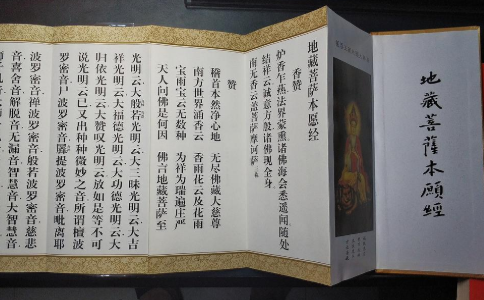 地藏菩薩本願經
地藏菩萨本愿经
香赞
炉香乍热法界蒙熏诸佛海会悉遥闻随处
结祥云诚意方殷诸佛现全身
南无香云盖菩萨摩诃萨
赞
稽首本然净心地 无尽佛藏大慈尊
南方世界涌香云 香雨花云及花雨
宝雨宝云无数种 为祥为瑞遍庄严
天人问佛是何因 佛言地藏菩萨至
光明云大般若光明云大三昧光明云大吉
祥光明云大福德光明云大功德光明云大
归依光明云大赞叹光明云放如是等不可
说光明云已又出种种微妙之音所谓檀波
罗密音尸波罗密音羼提波罗密音毗离耶
波罗密音禅波罗密音般若波罗密音慈悲
音喜舍音解脱音无漏音智慧音大智慧音